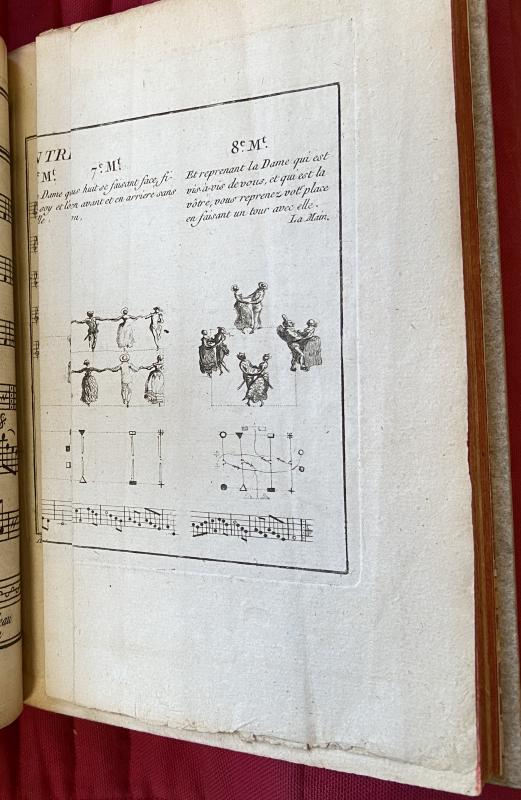 NTR
e. Mt.
7e. Mt.
8e. Mt.
Dame
ous huit se faisant face, fi-
et
en avant et en arriere sans
Et reprenant la Dame qui est
vis-à-vis de vous, et qui est la
vôtre, vous reprenez vot.e place
en faisant un tour avec elle.
La Main.
eau